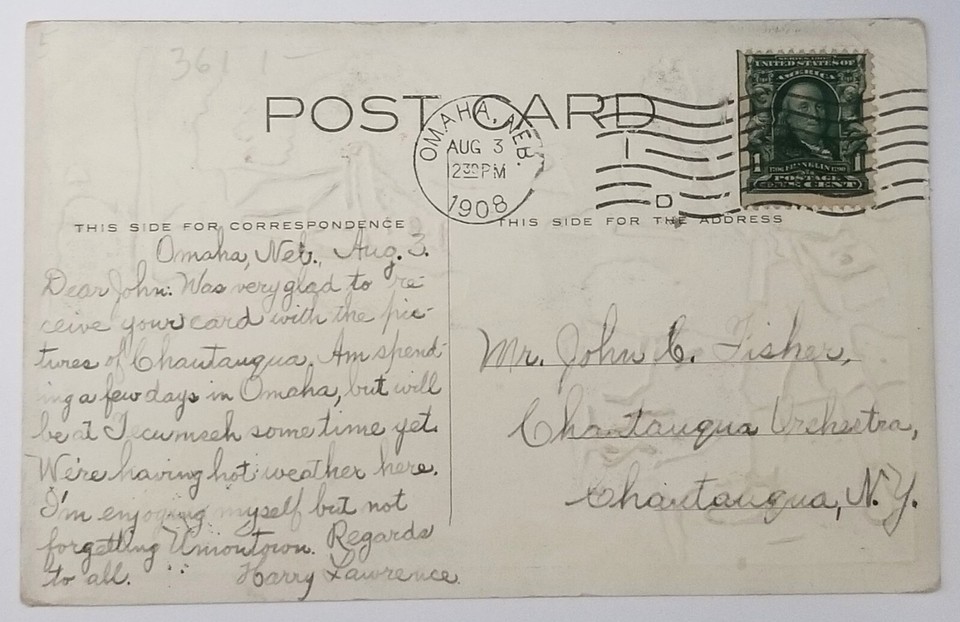 361 1-
POST CARD
OMAHA, NEB.
AUG 3
2 30 PM
1908
1
D
SERIES 1902
UNITED STATES OF
AMERICA
FRANKLIN
1 POSTAGE 1
ONE CENT
THIS SIDE FOR CORRESPONDENCE
THIS SIDE FOR THE ADDRESS
Omaha, Neb., Aug. 3.
Dear John: Was very glad to re-
ceive your card with the pic-
tures of Chautauqua. Am spend-
ing a few days in Omaha, but will
be at Tecumseh some time yet.
We're having hot weather here.
I'm enjoying myself but not
forgetting Uniontown. Regards
to all. Harry Lawrence.
Mr. John C. Fisher,
Chautauqua Orchestra,
Chautauqua, N.Y.